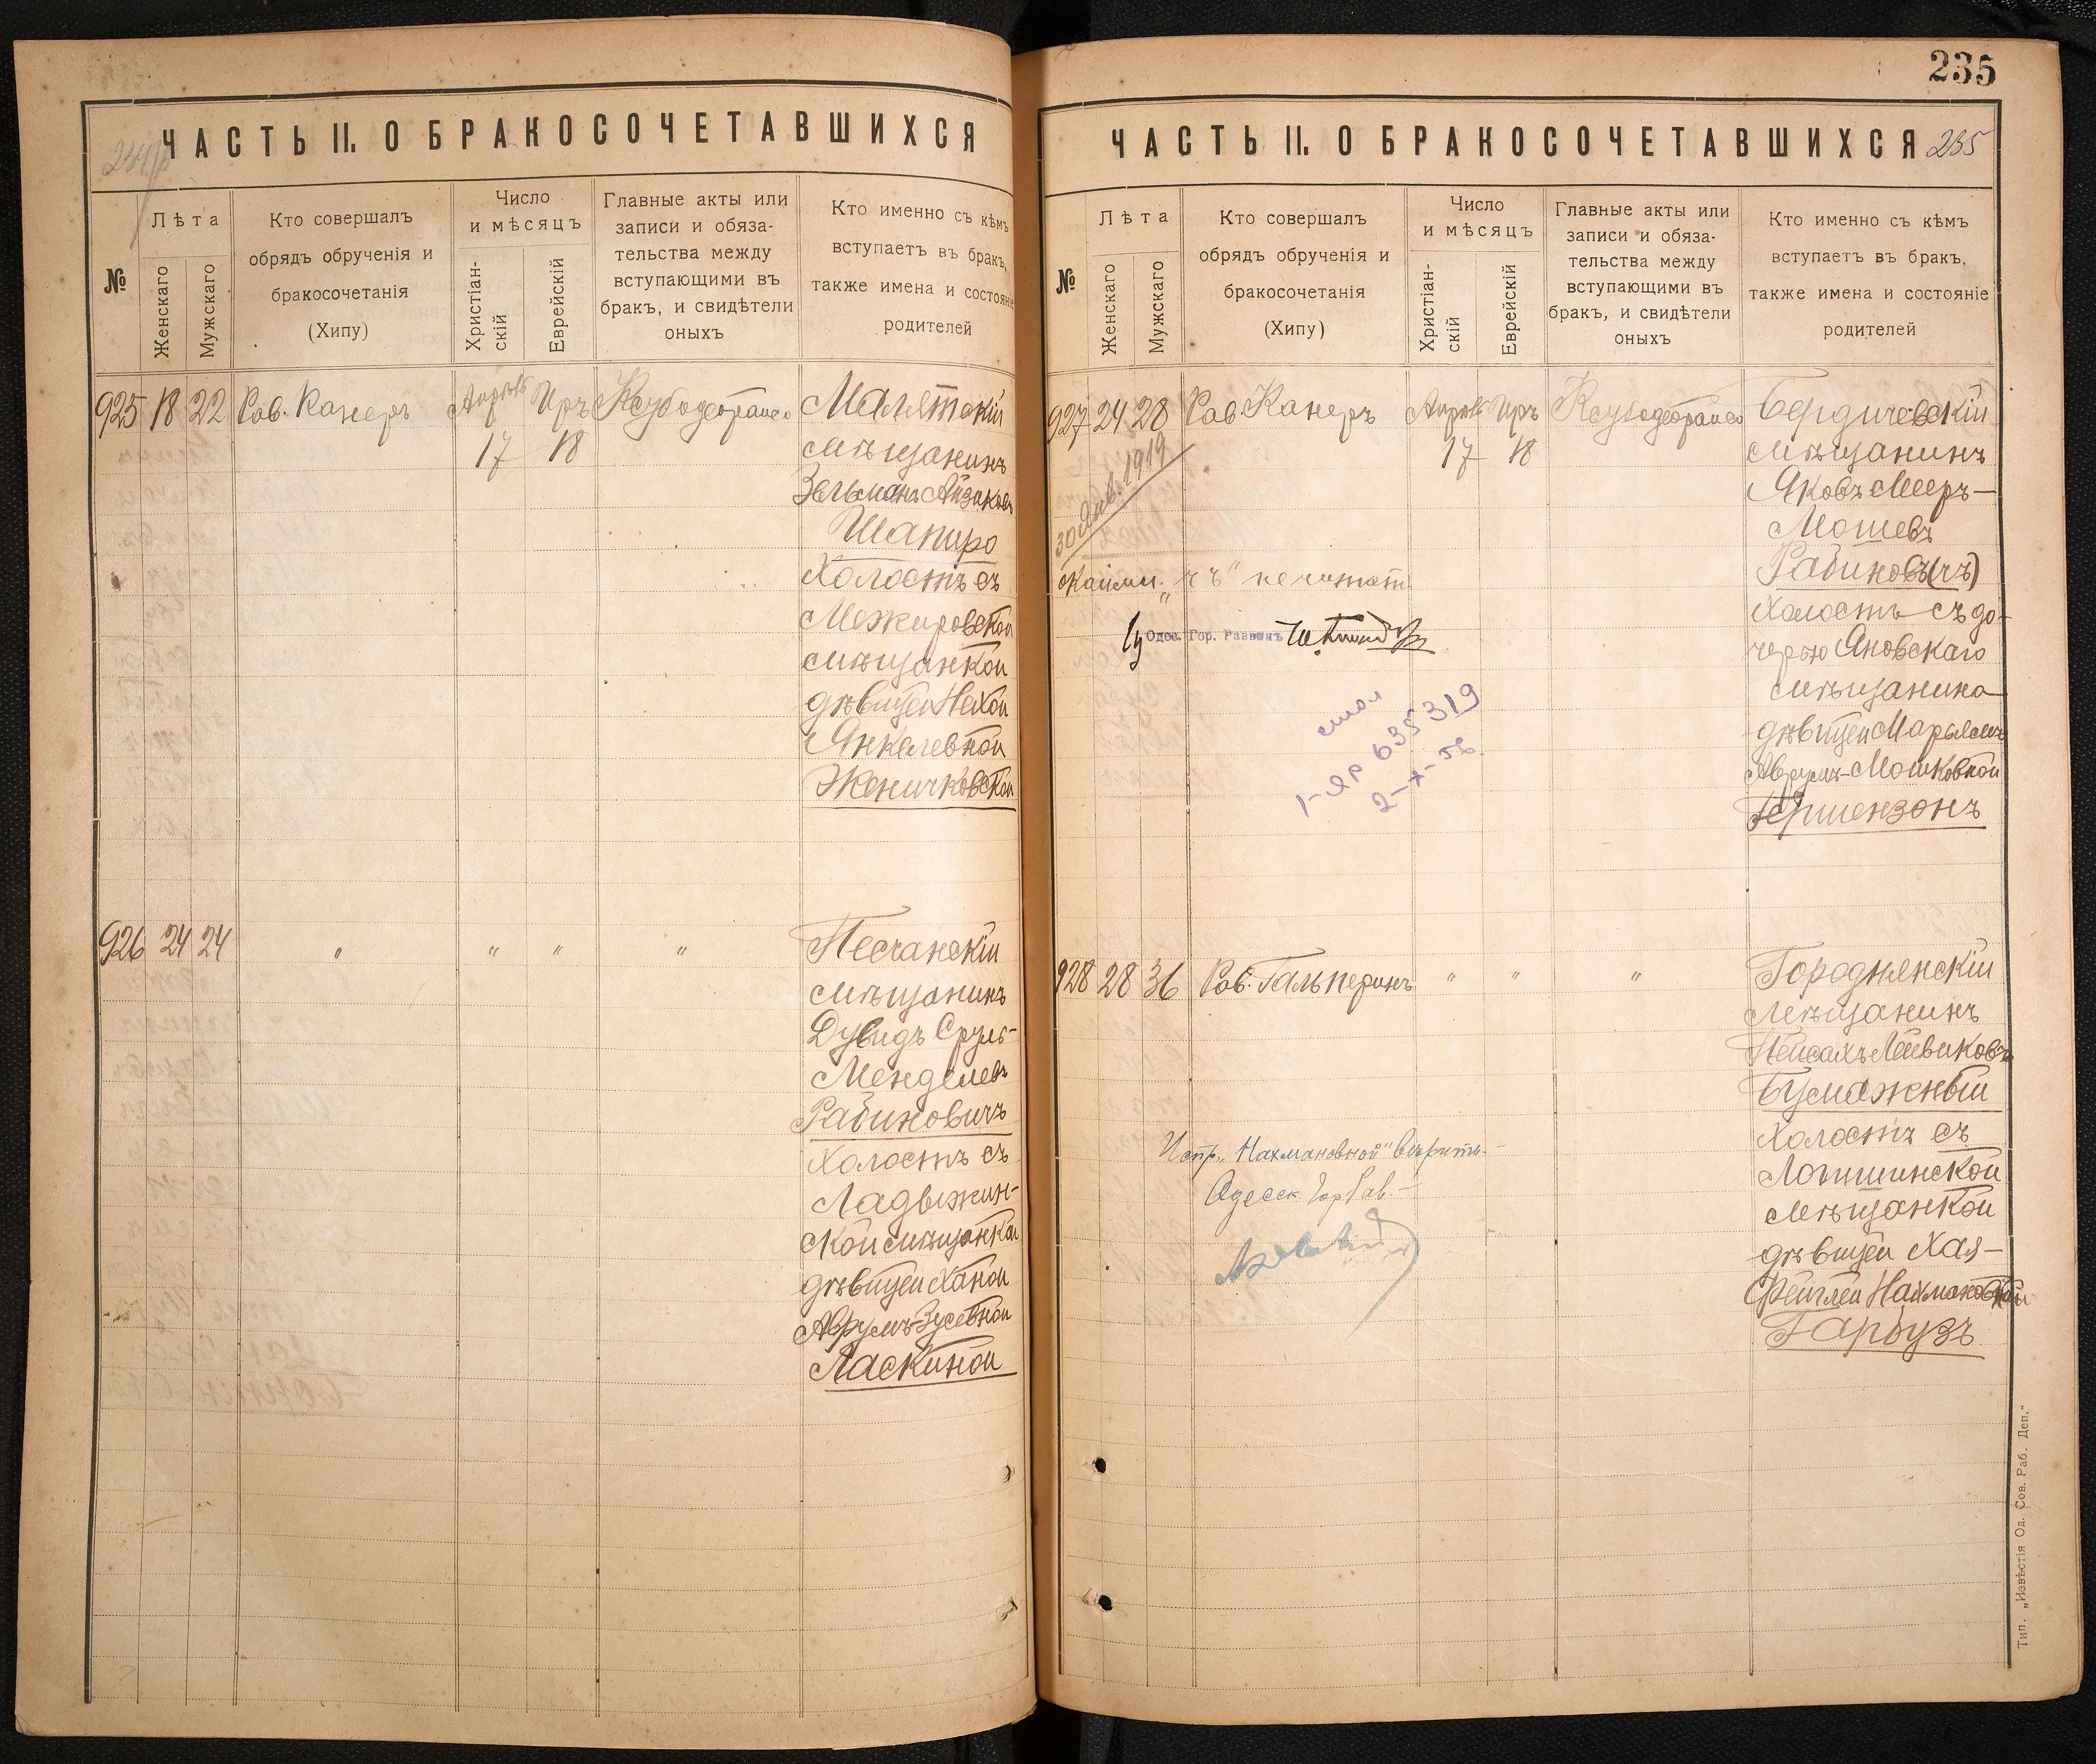 ЧАСТЬ II. О БРАКОСОЧЕТАВШИХСЯ
№
Лѣта
Женскаго
Мужскаго
Кто совершалъ
обрядъ обрученія и
бракосочетанія
(Хипу)
Число
и мѣсяцъ
Христіан-
скій
Еврейскій
Главные акты или
записи и обяза-
тельства между
вступающими въ
бракъ, и свидѣтели
оныхъ
Кто именно съ кѣмъ
вступаетъ въ бракъ,
также имена и состояніе
родителей
925 18 22 Рав. Канеръ Апрѣль 17 Иръ 18
Малятскій
мѣщанинъ
Зельманъ Айзиковъ
Шапиро
Холостъ съ
Межировской
мѣщанкой
дѣвицей Нехой
Янкелевной
Женичковской
926 24 24 " " " "
Песчанскій
мѣщанинъ
Дувидъ Сруль-
Менделевъ
Рабиновичъ
Холостъ съ
Ладыжин-
ской мѣщанкой
дѣвицей Ханой
Аврумъ-Зусевной
Ласкиной
235
ЧАСТЬ II. О БРАКОСОЧЕТАВШИХСЯ 235
№
Лѣта
Женскаго
Мужскаго
Кто совершалъ
обрядъ обрученія и
бракосочетанія
(Хипу)
Число
и мѣсяцъ
Христіан-
скій
Еврейскій
Главные акты или
записи и обяза-
тельства между
вступающими въ
бракъ, и свидѣтели
оныхъ
Кто именно съ кѣмъ
вступаетъ въ бракъ,
также имена и состояніе
родителей
927 24 28 Рав. Канеръ Апрѣль 17 Иръ 18
Бердичевскій
мѣщанинъ
Яковъ Мееръ-
Мошевъ
Рабинов(чъ)
Холостъ съ до-
черью Яновскаго
мѣщанина
дѣвицей Марьямъ
Аврумъ-Мошковной
Гершензонъ
30 Янв. 1919
"чъ" не читать
Одес. Гор. Раввинъ
635319
2-X-56
928 28 36 Рав. Гальперинъ " " "
Городнянскій
мѣщанинъ
Пейсахъ Лейвиковъ
Бумажный
Холостъ съ
мѣщанкой
дѣвицей Хая-
Фейглей Нахмановной
Гарбузъ
Испр. "Нахмановной" вѣрить-
Одесск. Гор Рав.-
Тип. „Извѣстія Од. Сов. Раб. Деп."